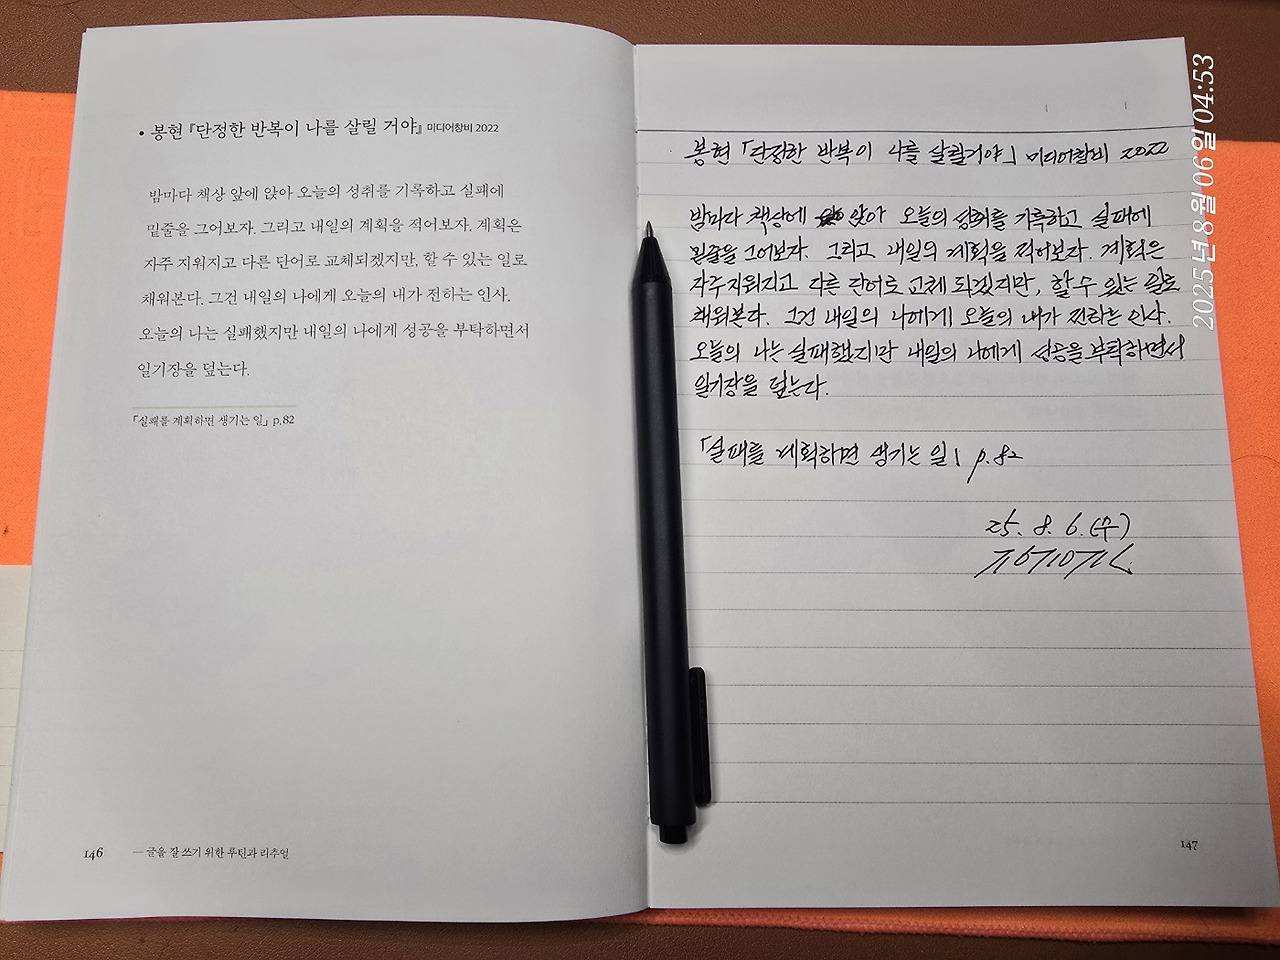 • 봉현 『단정한 반복이 나를 살릴 거야』 미디어창비 2022
밤마다 책상 앞에 앉아 오늘의 성취를 기록하고 실패에
밑줄을 그어보자. 그리고 내일의 계획을 적어보자. 계획은
자주 지워지고 다른 단어로 교체되겠지만, 할 수 있는 일로
채워본다. 그건 내일의 나에게 오늘의 내가 전하는 인사.
오늘의 나는 실패했지만 내일의 나에게 성공을 부탁하면서
일기장을 덮는다.
「실패를 계획하면 생기는 일」 p.82
146 — 글을 잘 쓰기 위한 루틴과 리추얼
봉현 「단정한 반복이 나를 살릴거야」 미디어창비 2022
밤마다 책상에 앉아 오늘의 성취를 기록하고 실패에
밑줄을 그어보자. 그리고 내일의 계획을 적어보자. 계획은
자주 지워지고 다른 단어로 교체 되겠지만, 할 수 있는 일로
채워본다. 그건 내일의 나에게 오늘의 내가 전하는 인사.
오늘의 나는 실패했지만 내일의 나에게 성공을 부탁하면서
일기장을 덮는다.
「실패를 계획하면 생기는 일」 p.82
25. 8. 6.(수)
147
2025년 8월 06일 04:53